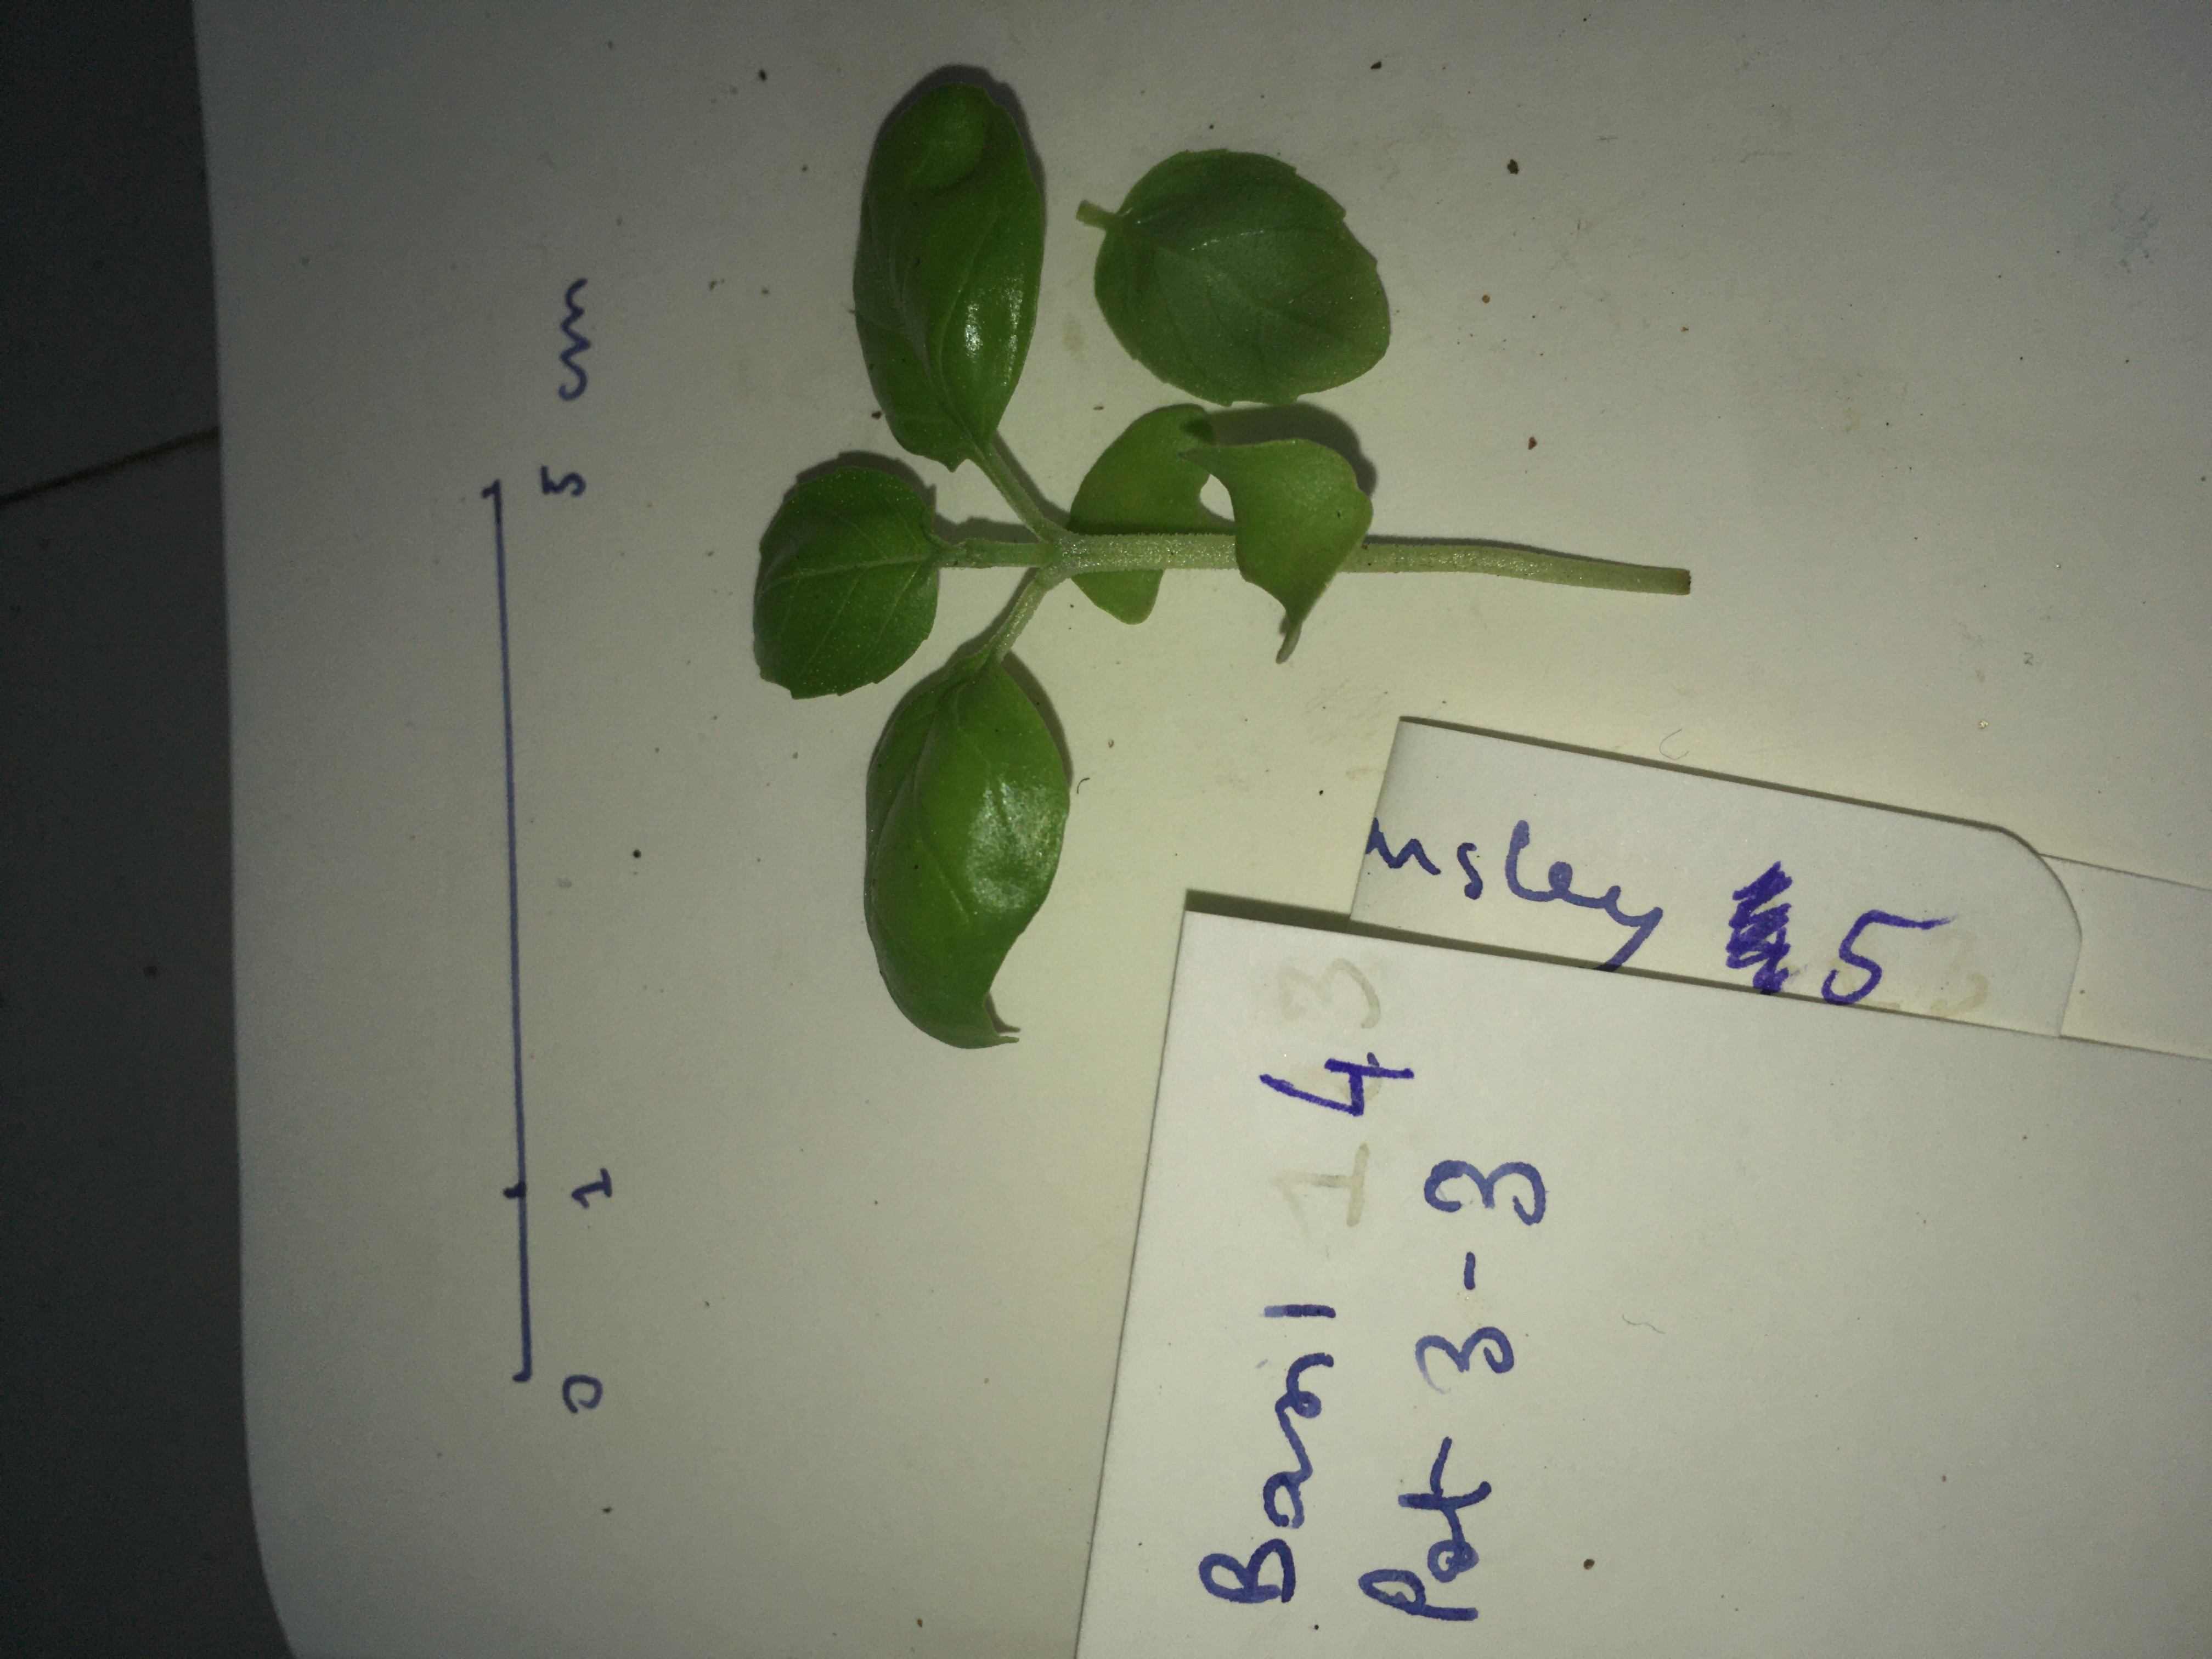 0 1 5 cm
Basil 4
Pot 3-3
nsley
5